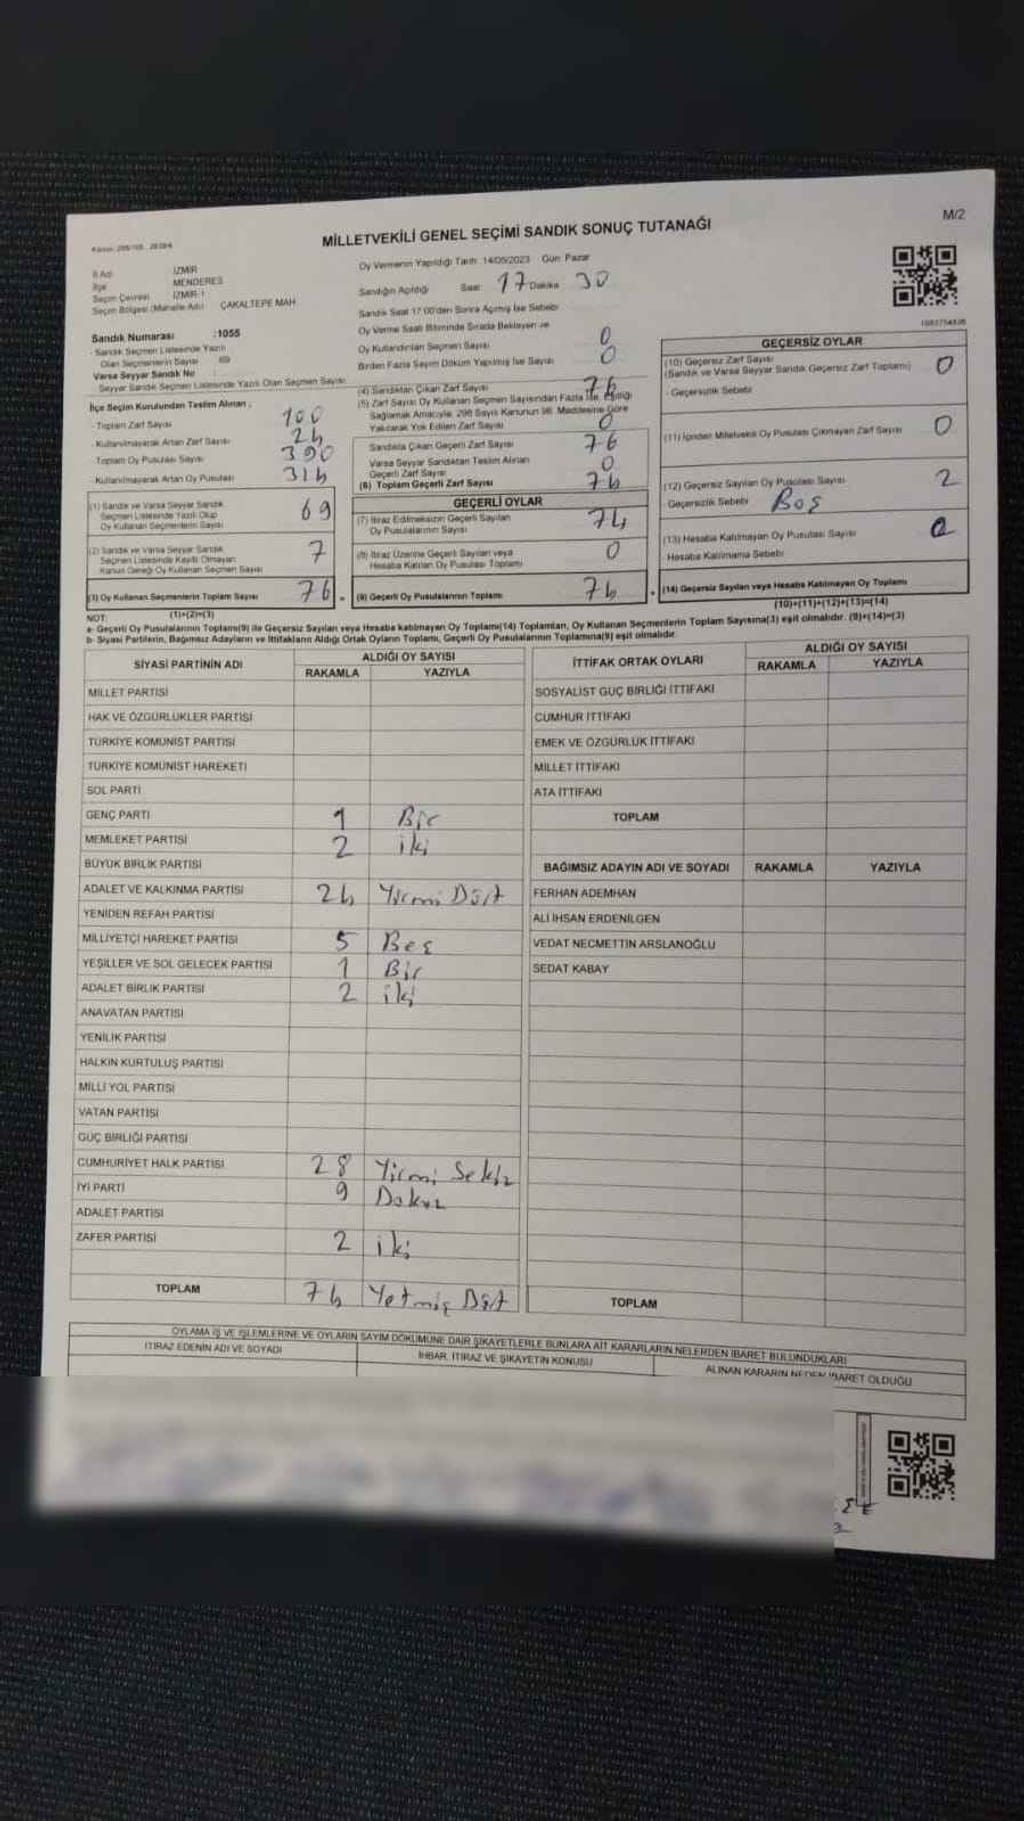 M/2
MİLLETVEKİLİ GENEL SEÇİMİ SANDIK SONUÇ TUTANAĞI
İl Adı İZMİR
İlçe MENDERES
Seçim Çevresi İZMİR-1
Seçim Bölgesi (Mahalle Adı) ÇAKALTEPE MAH
Sandık Numarası :1055
Sandık Seçmen Listesinde Yazılı
Olan Seçmenlerin Sayısı
Varsa Seyyar Sandık No
Seyyar Sandık Seçmen Listesinde Yazılı Olan Seçmen Sayısı
İlçe Seçim Kurulundan Teslim Alınan :
- Toplam Zarf Sayısı 100
- Kullanılmayarak Artan Zarf Sayısı 24
- Toplam Oy Pusulası Sayısı 390
- Kullanılmayarak Artan Oy Pusulası 314
(1) Sandık ve Varsa Seyyar Sandık
Seçmen Listesinde Yazılı Olup
Oy Kullanan Seçmenlerin Sayısı 69
(2) Sandık ve Varsa Seyyar Sandık
Seçmen Listesinde Kayıtlı Olmayan
Kanun Gereği Oy Kullanan Seçmen Sayısı 7
(3) Oy Kullanan Seçmenlerin Toplam Sayısı 76
(1)+(2)=(3)
Oy Vermenin Yapıldığı Tarih: 14/05/2023 Gün: Pazar
Sandığın Açıldığı Saat: 17 Dakika 30
Sandık Saat 17.00'den Sonra Açılmış İse Sebebi
Oy Verme Saati Bitiminde Sırada Bekleyen ve
Oy Kullandırılan Seçmen Sayısı 0
Birden Fazla Sayım Döküm Yapılmış İse Sayısı 0
(4) Sandıktan Çıkan Zarf Sayısı 76
(5) Zarf Sayısı Oy Kullanan Seçmen Sayısından Fazla İse, Eşitliği
Sağlamak Amacıyla, 298 Sayılı Kanunun 98. Maddesine Göre
Yakılarak Yok Edilen Zarf Sayısı 0
Sandıkta Çıkan Geçerli Zarf Sayısı 76
Varsa Seyyar Sandıktan Teslim Alınan
Geçerli Zarf Sayısı 0
(6) Toplam Geçerli Zarf Sayısı 76
GEÇERLİ OYLAR
(7) İtiraz Edilmeksizin Geçerli Sayılan
Oy Pusulalarının Sayısı 74
(8) İtiraz Üzerine Geçerli Sayılan veya
Hesaba Katılan Oy Pusulası Toplamı 0
(9) Geçerli Oy Pusulalarının Toplamı 74
GEÇERSİZ OYLAR
(10) Geçersiz Zarf Sayısı
(Sandık ve Varsa Seyyar Sandık Geçersiz Zarf Toplamı) 0
- Geçersizlik Sebebi
(11) İçinden Milletvekili Oy Pusulası Çıkmayan Zarf Sayısı 0
(12) Geçersiz Sayılan Oy Pusulası Sayısı 2
Geçersizlik Sebebi Boş
(13) Hesaba Katılmayan Oy Pusulası Sayısı
Hesaba Katılmama Sebebi
(14) Geçersiz Sayılan veya Hesaba Katılmayan Oy Toplamı
(10)+(11)+(12)+(13)=(14)
NOT:
a- Geçerli Oy Pusulalarının Toplamı(9) ile Geçersiz Sayılan veya Hesaba katılmayan Oy Toplamı(14) Toplamları, Oy Kullanan Seçmenlerin Toplam Sayısına(3) eşit olmalıdır. (9)+(14)=(3)
b- Siyasi Partilerin, Bağımsız Adayların ve İttifakların Aldığı Ortak Oyların Toplamı, Geçerli Oy Pusulalarının Toplamına(9) eşit olmalıdır.
SİYASİ PARTİNİN ADI ALDIĞI OY SAYISI
RAKAMLA YAZIYLA
MİLLET PARTİSİ
HAK VE ÖZGÜRLÜKLER PARTİSİ
TÜRKİYE KOMÜNİST PARTİSİ
TÜRKİYE KOMÜNİST HAREKETİ
SOL PARTİ
GENÇ PARTİ 1 Bir
MEMLEKET PARTİSİ 2 iki
BÜYÜK BİRLİK PARTİSİ
ADALET VE KALKINMA PARTİSİ 24 Yirmi Dört
YENİDEN REFAH PARTİSİ
MİLLİYETÇİ HAREKET PARTİSİ 5 Beş
YEŞİLLER VE SOL GELECEK PARTİSİ 1 Bir
ADALET BİRLİK PARTİSİ 2 iki
ANAVATAN PARTİSİ
YENİLİK PARTİSİ
HALKIN KURTULUŞ PARTİSİ
MİLLİ YOL PARTİSİ
VATAN PARTİSİ
GÜÇ BİRLİĞİ PARTİSİ
CUMHURİYET HALK PARTİSİ 28 Yirmi Sekiz
İYİ PARTİ 9 Dokuz
ADALET PARTİSİ
ZAFER PARTİSİ 2 iki
TOPLAM 74 Yetmiş Dört
İTTİFAK ORTAK OYLARI ALDIĞI OY SAYISI
RAKAMLA YAZIYLA
SOSYALİST GÜÇ BİRLİĞİ İTTİFAKI
CUMHUR İTTİFAKI
EMEK VE ÖZGÜRLÜK İTTİFAKI
MİLLET İTTİFAKI
ATA İTTİFAKI
TOPLAM
BAĞIMSIZ ADAYIN ADI VE SOYADI RAKAMLA YAZIYLA
FERHAN ADEMHAN
ALİ İHSAN ERDENİLGEN
VEDAT NECMETTİN ARSLANOĞLU
SEDAT KABAY
TOPLAM
OYLAMA İŞ VE İŞLEMLERİNE VE OYLARIN SAYIM DÖKÜMÜNE DAİR ŞİKAYETLERLE BUNLARA AİT KARARLARIN NELERDEN İBARET BULUNDUKLARI
İTİRAZ EDENİN ADI VE SOYADI İHBAR, İTİRAZ VE ŞİKAYETİN KONUSU ALINAN KARARIN NEDEN İBARET OLDUĞU